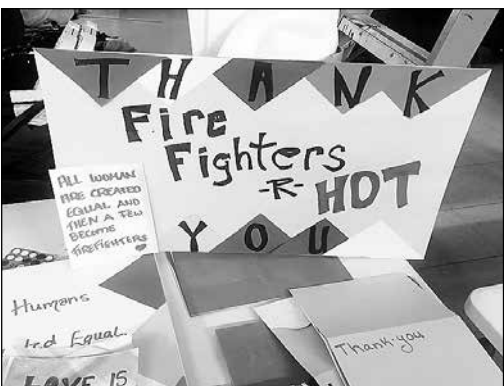 THANK
Fire
Fighters
-R- HOT
YOU
ALL WOMAN
ARE CREATED
EQUAL AND
THEN A FEW
BECOME
FIREFIGHTERS
Humans
Equal.
LOVE IS
Thank-you